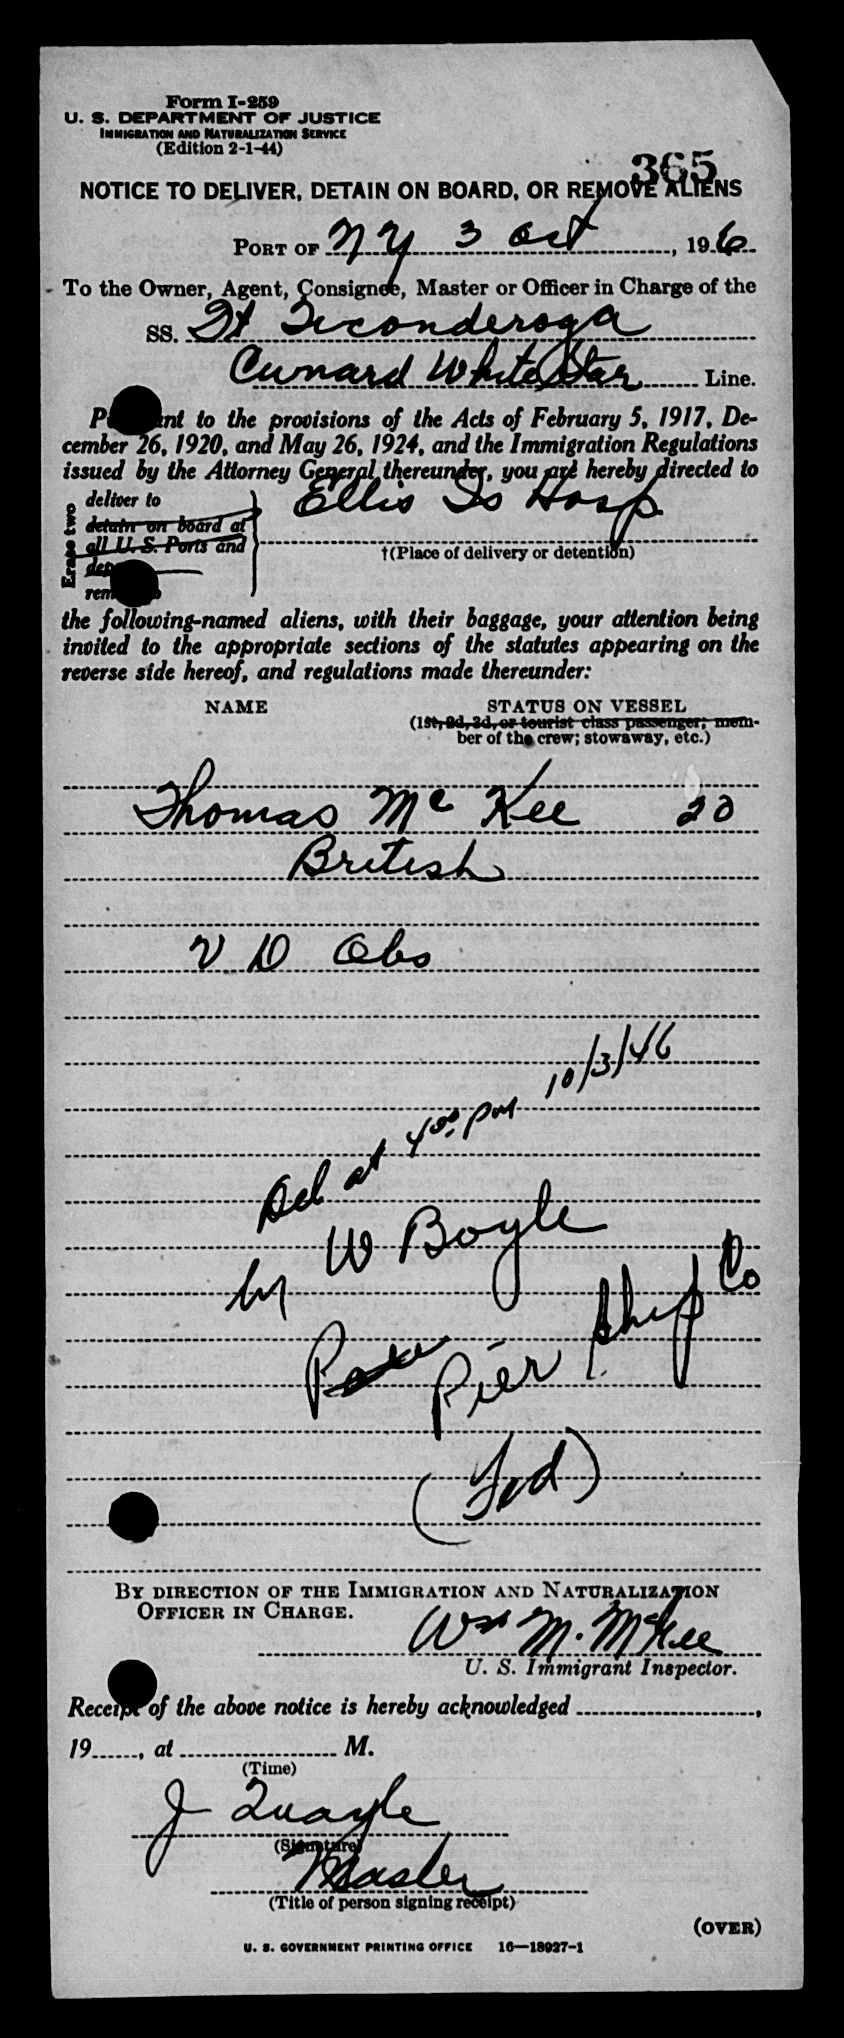 Form I-259
U. S. DEPARTMENT OF JUSTICE
IMMIGRATION AND NATURALIZATION SERVICE
(Edition 2-1-44)
365
NOTICE TO DELIVER, DETAIN ON BOARD, OR REMOVE ALIENS
PORT OF NY 3 Oct, 196
To the Owner, Agent, Consignee, Master or Officer in Charge of the
SS. Ft Ticonderoga
Cunard White Star Line.
P nt to the provisions of the Acts of February 5, 1917, De-
cember 26, 1920, and May 26, 1924, and the Immigration Regulations
issued by the Attorney General thereunder, you are hereby directed to
Erase two
deliver to Ellis Is Hosp
detain on board at
all U. S. Ports and
dep
rem
†(Place of delivery or detention)
the following-named aliens, with their baggage, your attention being
invited to the appropriate sections of the statutes appearing on the
reverse side hereof, and regulations made thereunder:
NAME STATUS ON VESSEL
(1st, 2d, 3d, or tourist class passenger; mem-
ber of the crew; stowaway, etc.)
Thomas Mc Kee 20
British
V D Obs
Del at 4 00 PM 10/3/46
by W Boyle
Pier Ship Co
BY DIRECTION OF THE IMMIGRATION AND NATURALIZATION
OFFICER IN CHARGE.
Wm M. McKee
U. S. Immigrant Inspector.
Receipt of the above notice is hereby acknowledged ,
19 , at M.
(Time)
J Quayle
(Signature)
Master
(Title of person signing receipt)
(OVER)
U. S. GOVERNMENT PRINTING OFFICE 16—18927-1